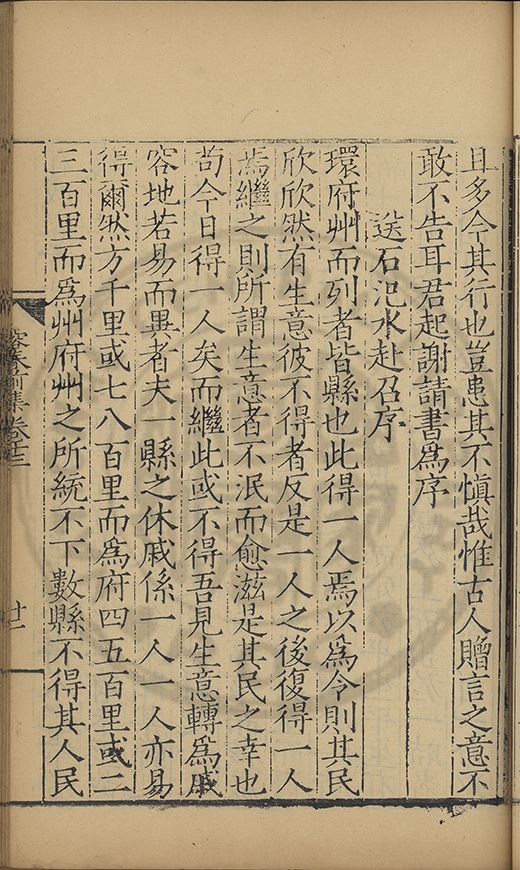 且多今其行也豈患其不慎哉惟古人贈言之意不
敢不告耳君起謝請書爲序
送石汜水赴召序
環府州而列者皆縣也此得一人焉以爲令則其民
欣欣然有生意彼不得者反是一人之後復得一人
焉繼之則所謂生意者不泯而愈滋是其民之幸也
茍今日得一人矣而繼此或不得吾見生意轉爲戚
容地若易而異者夫一縣之休戚係一人一人亦易
得爾然方千里或七八百里而爲府四五百里或二
三百里而爲州府州之所統不下數縣不得其人民
容春前集 卷十三
十二